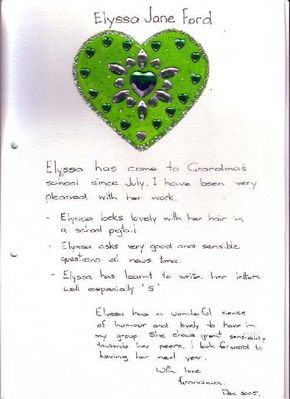 Elyssa Jane Ford
Elyssa has come to Grandma's
school since July. I have been very
pleased with her work.
- Elyssa looks lovely with her hair in
a school pigtail.
- Elyssa asks very good and sensible
questions at news time.
- Elyssa has learnt to write her letters
well especially 'S'
Elyssa has a wonderful sense
of humour and lovely to have in
my group. She shows great sensitivity
towards her peers. I look forward to
having her next year.
With love
Grandma.
Dec 2005.